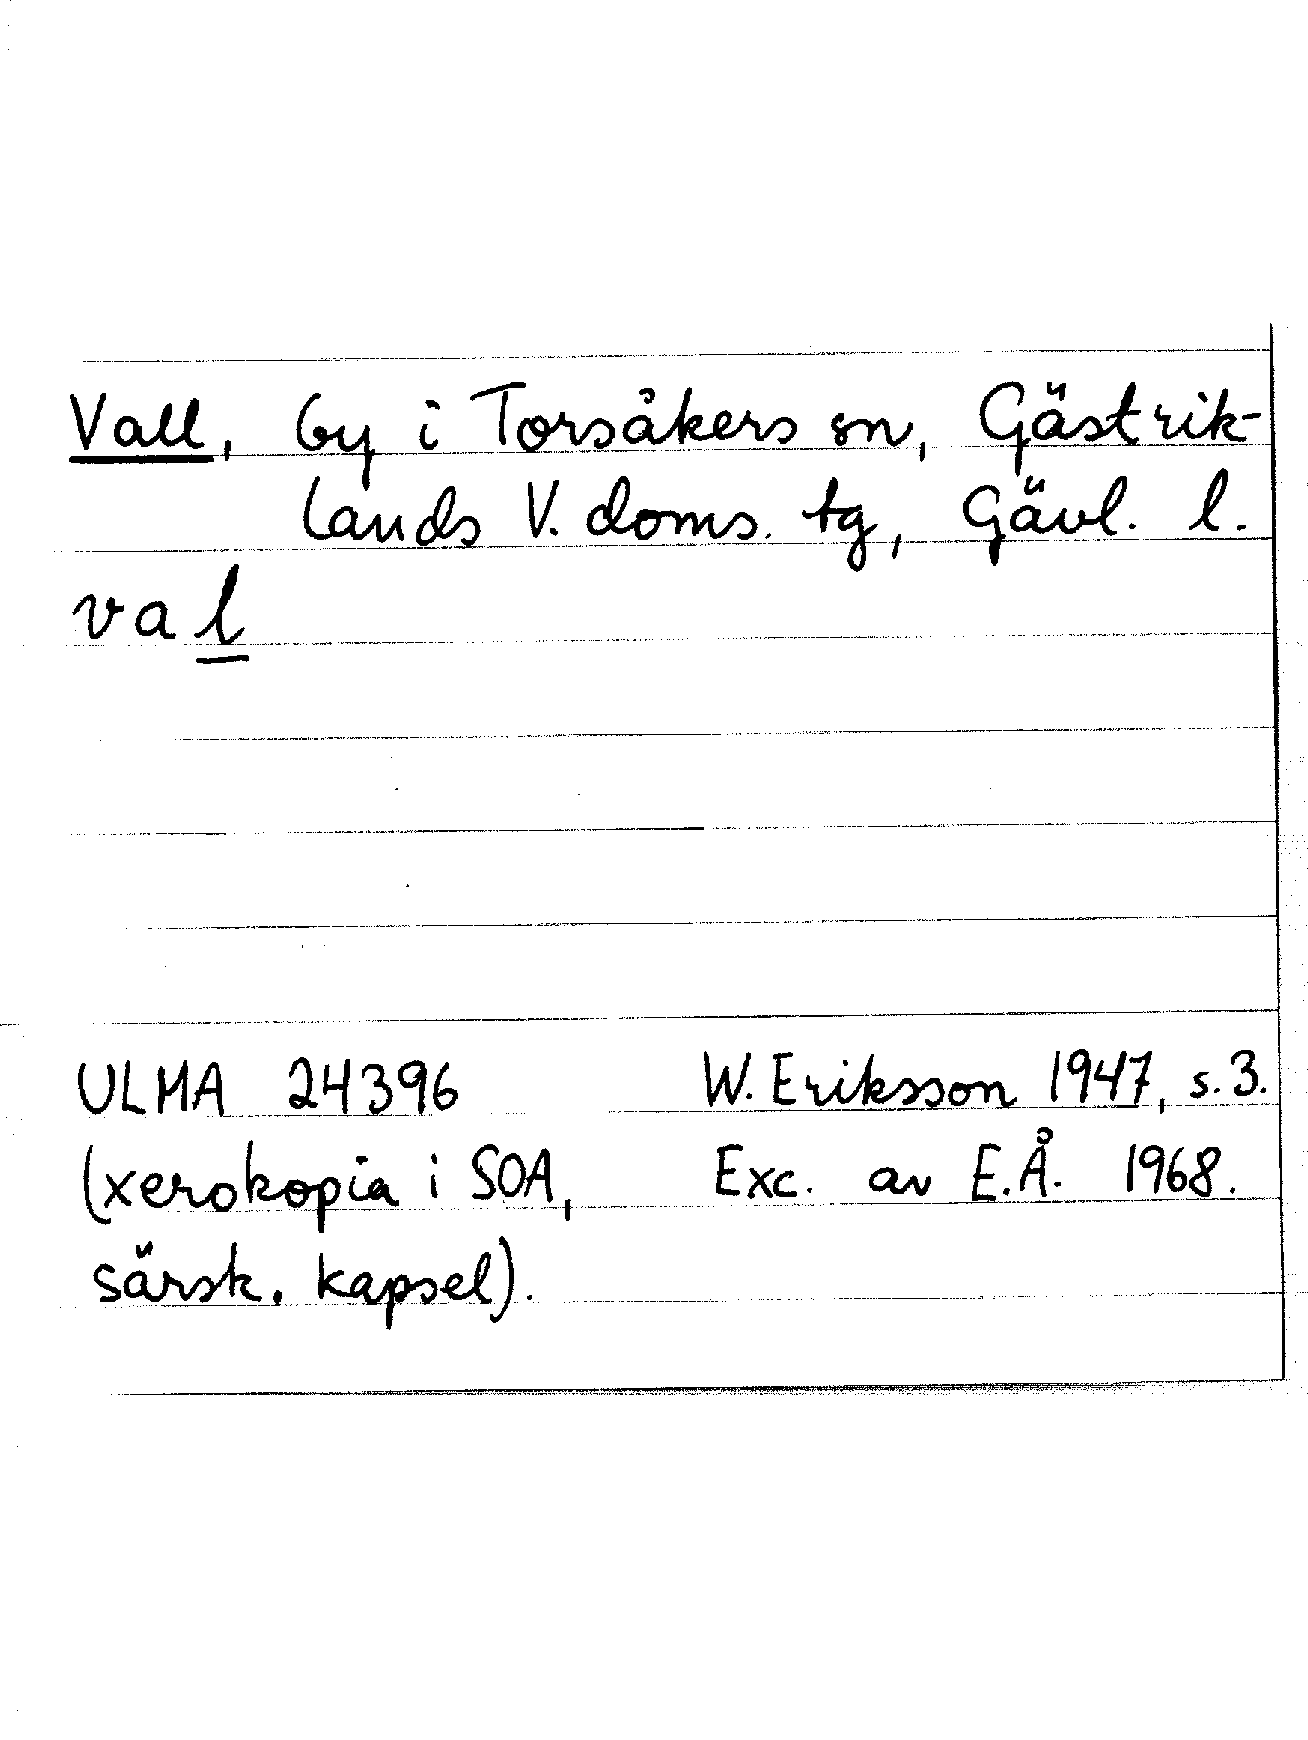 Vall, by i Torsåkers sn, Gästrik-
lands V. doms. tg, Gävl. l.
val
ULMA 24396 W. Eriksson 1947, s. 3.
(xerokopia i SOA, Exc. av E.Å. 1968.
särsk. kapsel).